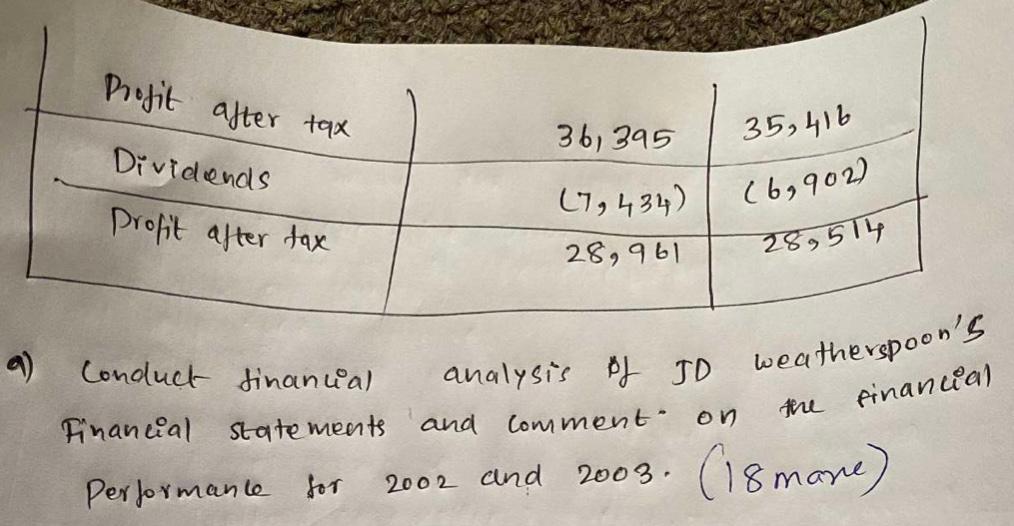 Profit after tax 36,395 35,416
Dividends (7,434) (6,902)
Profit after tax 28,961 28,514
a) Conduct financial analysis of JD weatherspoon's
Financial statements and comment on the financial
Performance for 2002 and 2003. (18 mare)